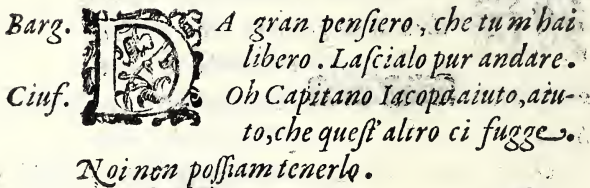 Barg. DA gran penſiero, che tu m'hai
libero. Laſcialo pur andare.
Ciuf. Oh Capitano Iacopo, aiuto, aiu-
to, che queſt'altro ci fugge.
Noi non poſſiam tenerlo.